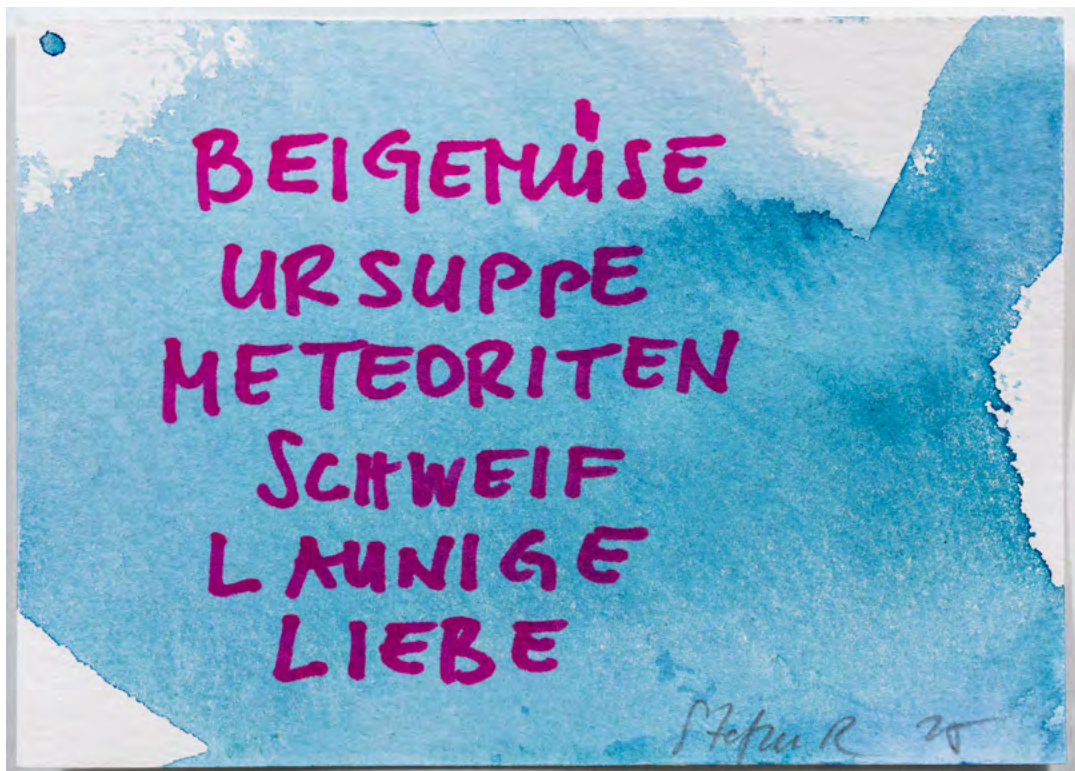 BEIGEMÜSE
URSUPPE
METEORITEN
SCHWEIF
LAUNIGE
LIEBE
Stefan R 25